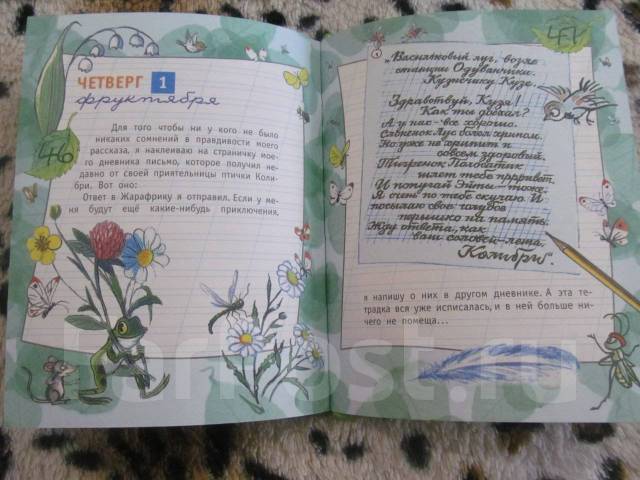 ЧЕТВЕРГ 1
фруктября
Для того чтобы ни у кого не было
никаких сомнений в правдивости моего
рассказа, я наклеиваю на страничку мое-
го дневника письмо, которое получил не-
давно от своей приятельницы птички Коли-
бри. Вот оно:
Ответ в Жарафрику я отправил. Если у ме-
ня будут ещё какие-нибудь приключения,
46
47
„Васильковый луг, возле
станции Одуванчики.
Кузнечику Кузе.
Здравствуй, Кузя!
Как ты доехал?
А у нас - все хорошо.
Слоненок Лус болел хрипом.
Но уже не хрипит и
совсем здоровый.
Тигренок
шлет тебе приррвет.
И попугай Эйты – тоже.
Я очень по тебе скучаю. И
посылаю свое голубое
перышко на память.
Жду ответа, как
ваш соловей - лета.
Колибри".
я напишу о них в другом дневнике. А эта те-
традка вся уже исписалась, и в ней больше ни-
чего не помеща...
farpost.ru